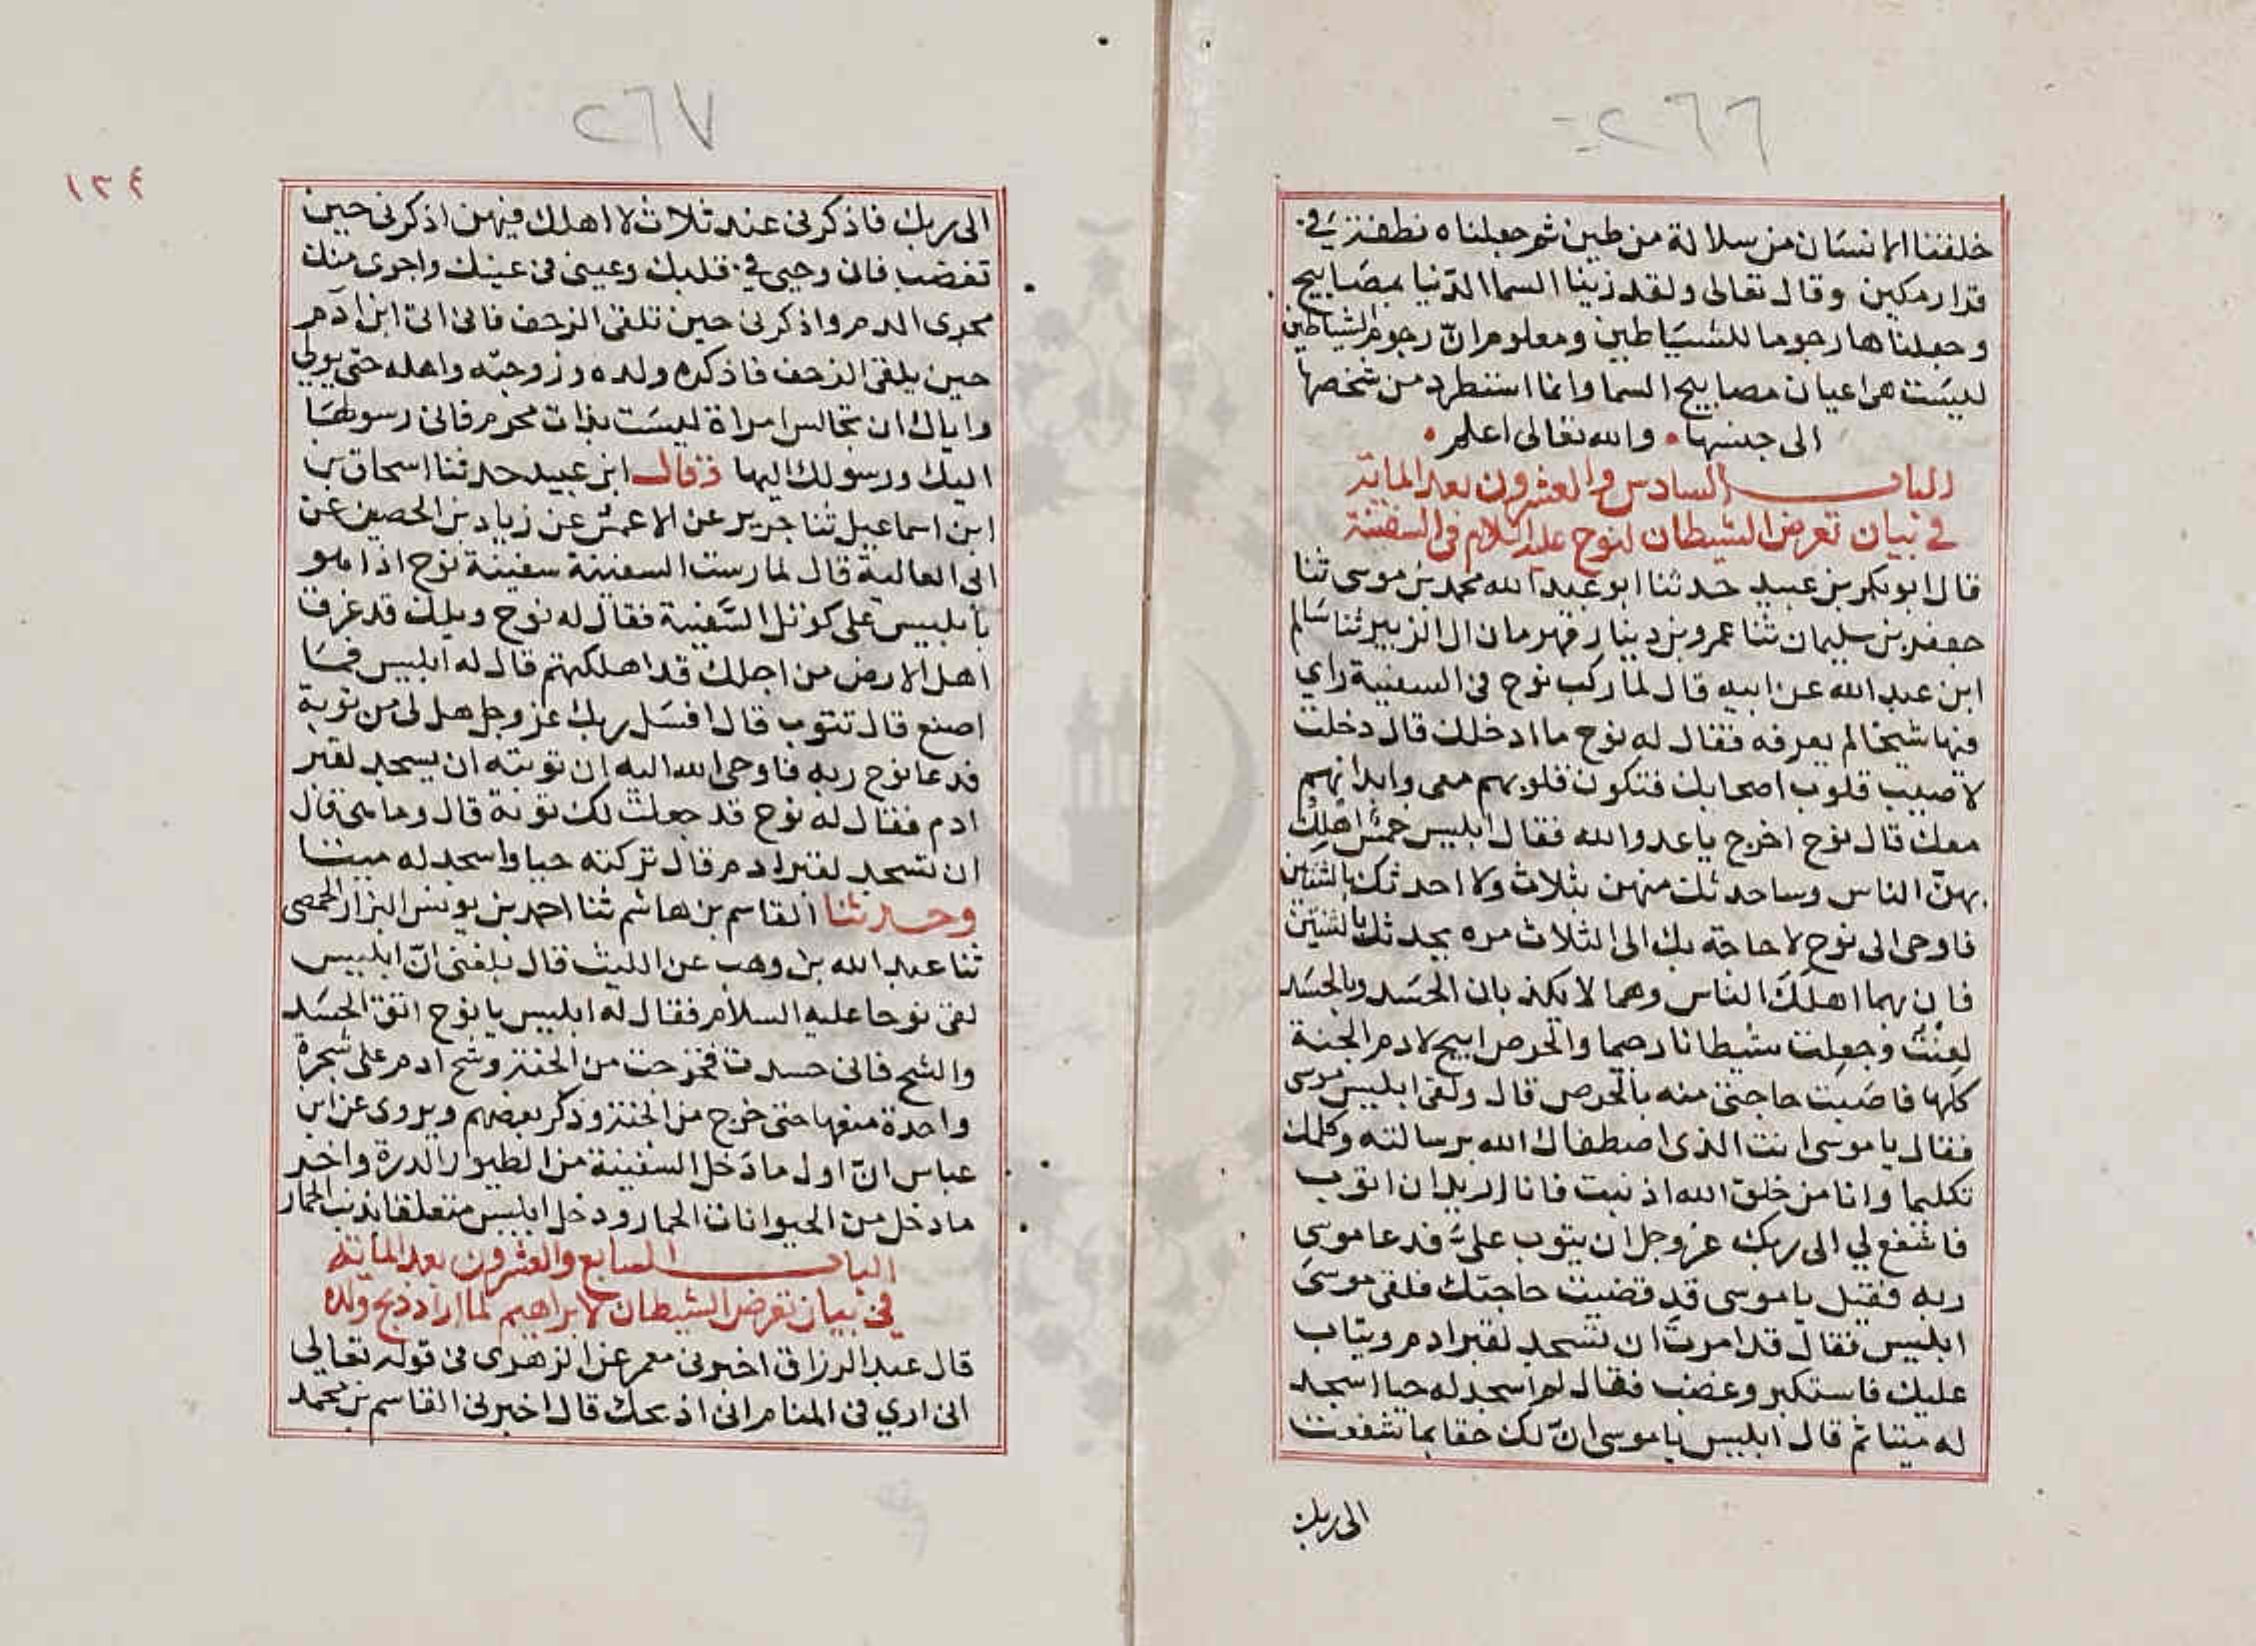 ٢٦٦
خلقنا الانسان من سلالة من طين ثم جعلناه نطفة في
قرار مكين وقال تعالى ولقد زينا السما الدّنيا بمصابيح
وجعلناها رجوما للشياطين ومعلوم انّ رجوم الشياطين
ليست هي اعيان مصابيح السما وانما استطرد من شخصها
الى جنسها والله تعالى اعلم
الباب السادس والعشرون بعد المائة
في بيان تعرض الشيطان لنوح عليه السلام في السفينة
قال ابو بكر بن عبيد حدثنا ابو عبد الله محمد بن موسى ثنا
جعفر بن سليمان ثنا عمرو بن دينار قهرمان ال الزبير ثنا سالم
ابن عبد الله عن ابيه قال لما ركب نوح في السفينة راي
فيها شيخا لم يعرفه فقال له نوح ما ادخلك قال دخلت
لاصيب قلوب اصحابك فتكون قلوبهم معى وابدانهم
معك قال نوح اخرج يا عدو الله فقال ابليس خمس اهلك
بهنّ الناس وساحدثك منهن بثلاث ولا احدثك بالثنتين
فاوحى الى نوح لا حاجة بك الى الثلاث مره يحدثك بالثنتين
فان بهما اهلك الناس وهما لا يكذبان الحسد وبالحسد
لعنت وجعلت شيطانا رجيما والحرص ابيح لادم الجنة
كلها فاصبت حاجتى منه بالحرص قال ولقى ابليس موسى
فقال يا موسى انت الذى اصطفاك الله برسالته وكلمك
تكليما وانا من خلق الله اذنبت فانا اريد ان اتوب
فاشفع لي الى ربك عز وجل ان يتوب علىّ فدعا موسى
ربه فقيل يا موسى قد قضيت حاجتك فلقى موسى
ابليس فقال قد امرت ان تسجد لقبر ادم ويتاب
عليك فاستكبر وغضب فقال لم اسجد له حيا اسجد
له ميتا ثم قال ابليس يا موسى انّ لك حقا بما تشفعت
الى ربك
٢٦٧
١٣٤
الى ربك فاذكرنى عند ثلاث لا اهلك فيهن اذكرنى حين
تغضب فان وحيى في قلبك وعينى في عينك واجرى منك
مجرى الدم واذكرنى حين تلقى الزحف فانى اتى ابن ادم
حين يلقى الزحف فاذكره ولده وزوجته واهله حتى يولي
واياك ان تجالس امراة ليست بذات محرم فانى رسولها
اليك ورسولك اليها قال ابن عبيد حدثنا اسحاق بن
ابن اسماعيل ثنا جرير عن الاعمش عن زياد بن الحصين عن
ابى العالية قال لما رست السفينة سفينة نوح اذا هو
بابليس على كوثل السفينة فقال له نوح ويلك قد غرق
اهل الارض من اجلك قد اهلكتهم قال له ابليس فما
اصنع قال تتوب قال افسل ربك عز وجل هل لى من توبة
فدعا نوح ربه فاوحى الله اليه ان توبته ان يسجد لقبر
ادم فقال له نوح قد جعلت لك توبة قال وما هى قال
ان تسجد لقبر ادم قال تركته حيا واسجد له ميتا
وحدثنا القاسم بن هاشم ثنا احمد بن يونس البزار الحمصى
ثنا عبد الله بن وهب عن الليث قال بلغنى انّ ابليس
لقى نوحا عليه السلام فقال له ابليس يا نوح اتق الحسد
والشح فانى حسدت فخرجت من الجنة وشح ادم على شجرة
واحدة منعها حتى خرج من الجنة وذكر بعضهم ويروى عن ابن
عباس انّ اول ما دخل السفينة من الطيور الدرة واخر
ما دخل من الحيوانات الحمار ودخل ابليس متعلقا بذنب الحمار
الباب السابع والعشرون بعد المائة
في بيان تعرض الشيطان لابراهيم لما اراد ذبح ولده
قال عبد الرزاق اخبرنى معمر عن الزهرى في قوله تعالى
انى ارى في المنام انى اذبحك قال اخبرنى القاسم بن محمد